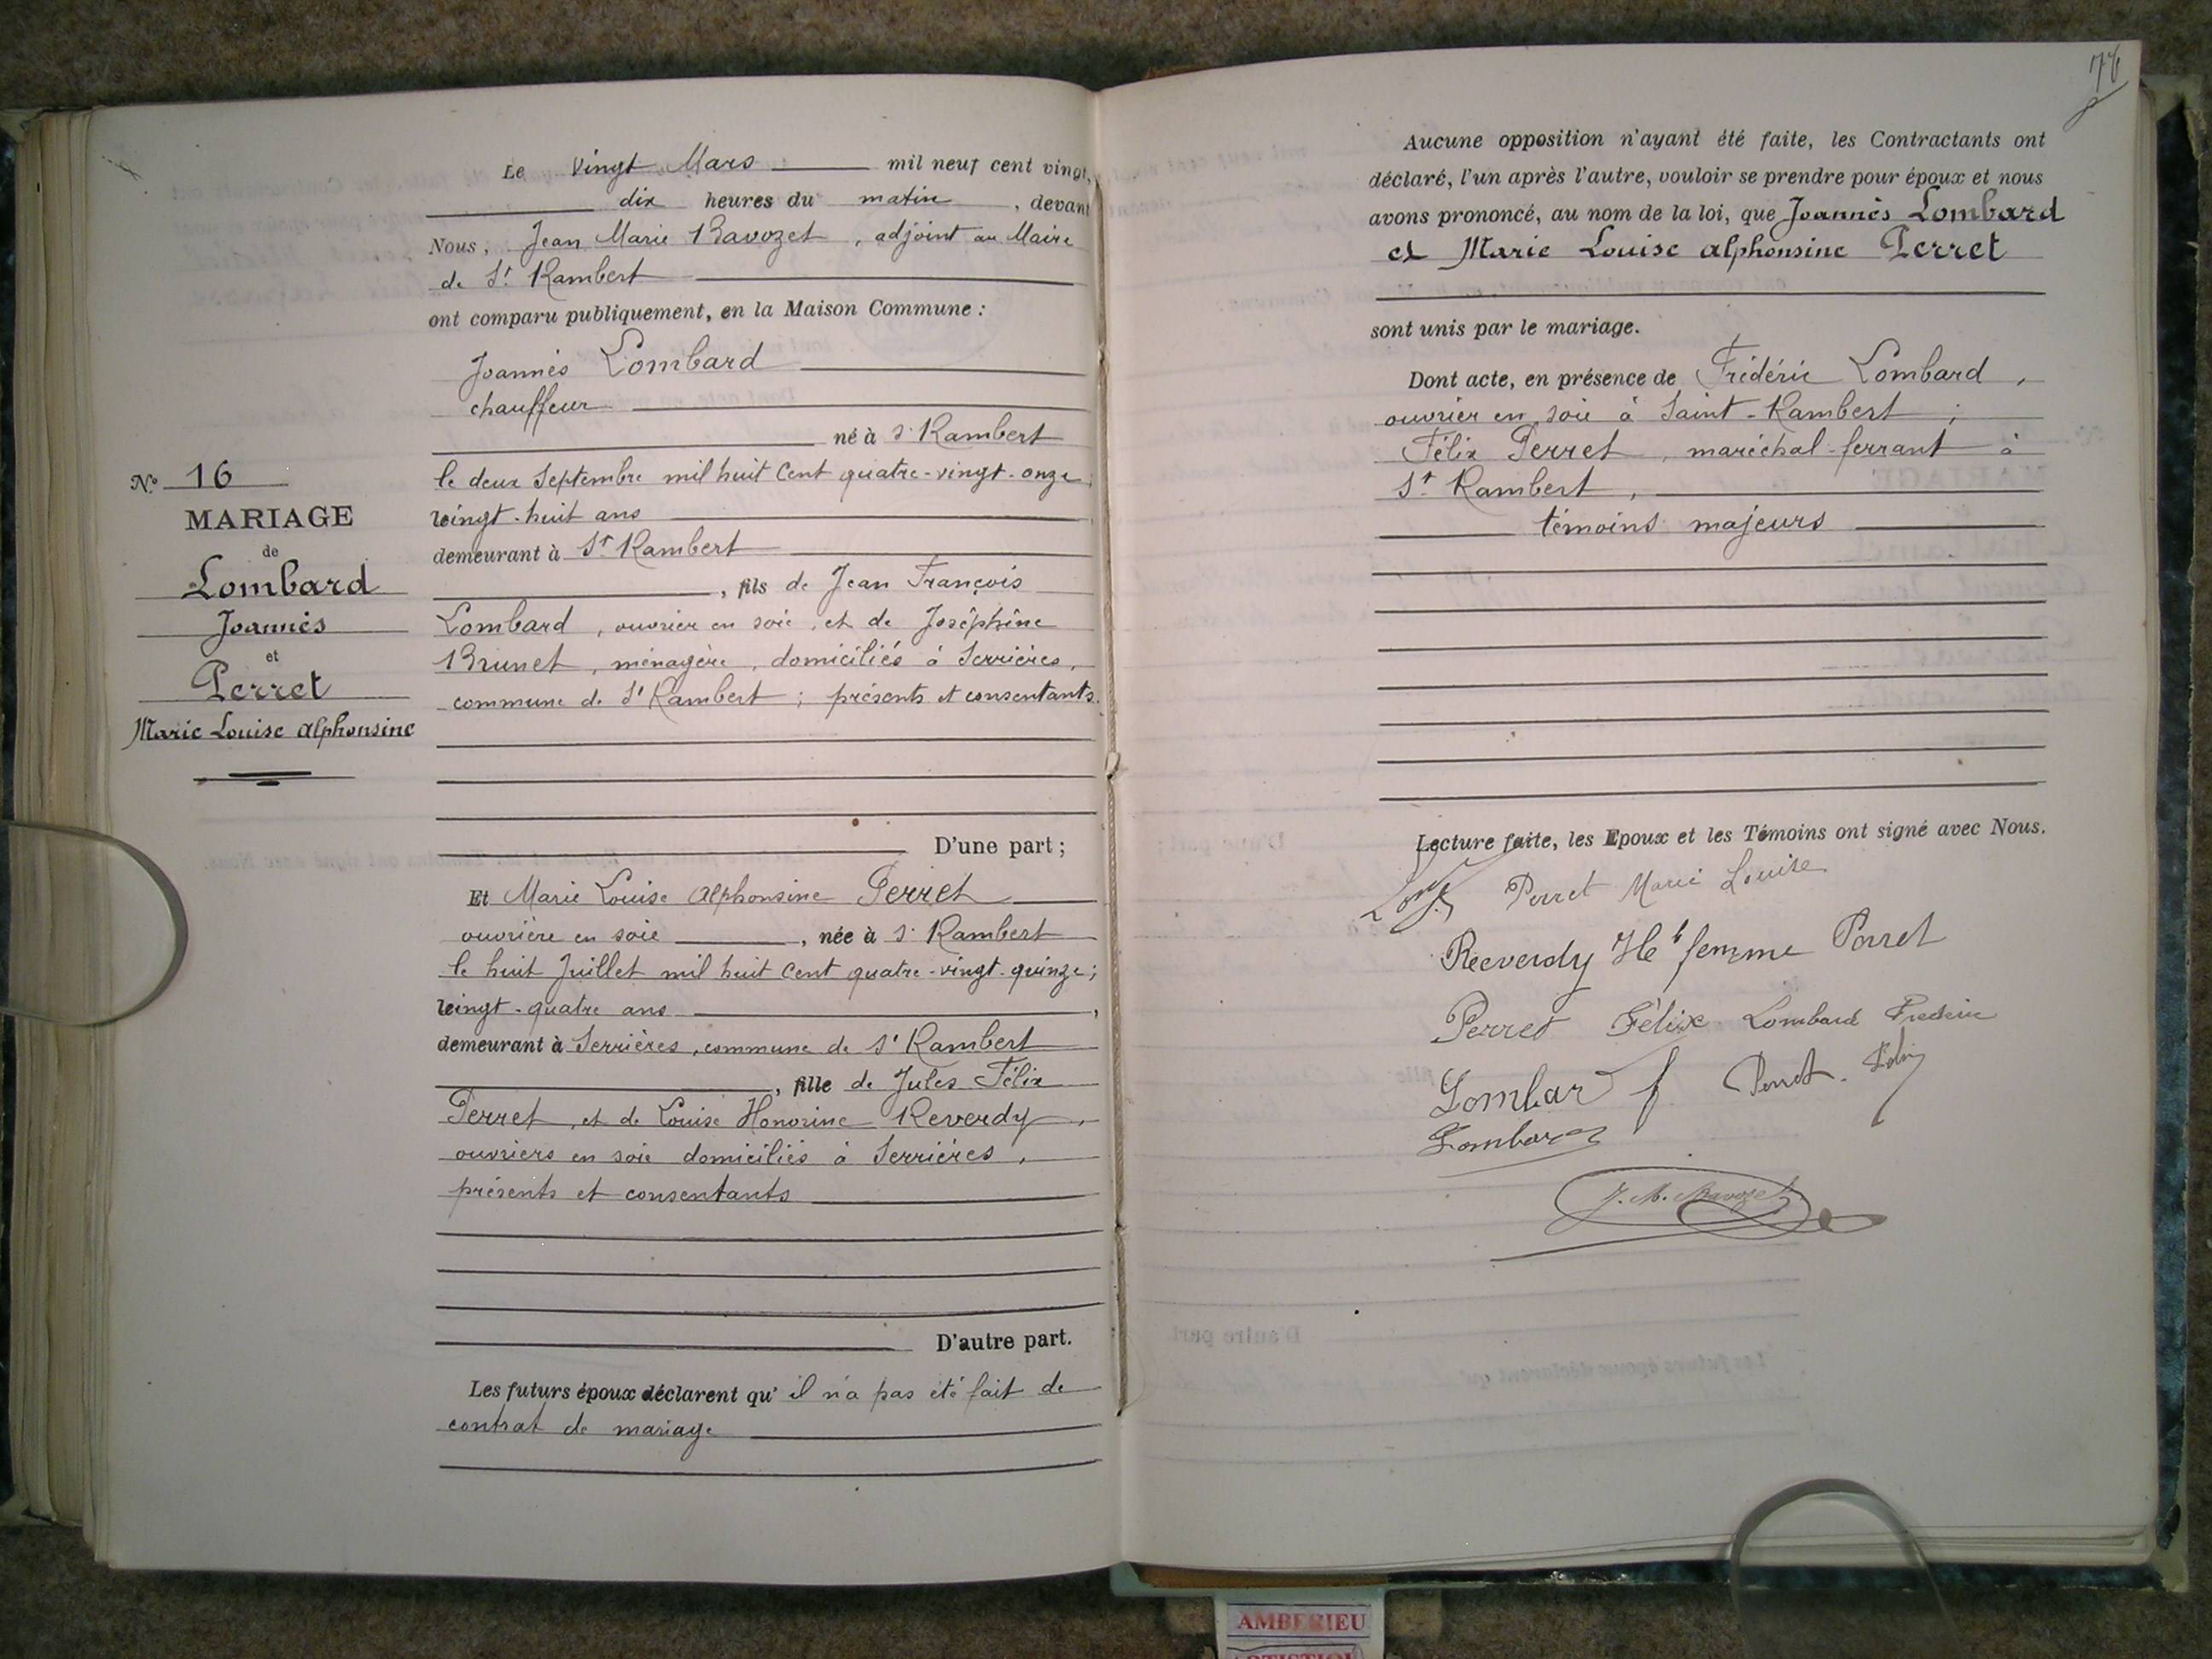 N° 16
MARIAGE
de
Lombard
Joannès
et
Perret
Marie Louise Alphonsine
Le vingt Mars mil neuf cent vingt,
dix heures du matin, devant
Nous, Jean Marie Bavozet, adjoint au Maire
de St Rambert
ont comparu publiquement, en la Maison Commune :
Joannès Lombard
chauffeur
né à St Rambert
le deux Septembre mil huit cent quatre-vingt-onze,
vingt-huit ans
demeurant à St Rambert
, fils de Jean François
Lombard, ouvrier en soie, et de Joséphine
Brunet, ménagère, domiciliés à Serrières,
commune de St Rambert ; présents et consentants.
D'une part ;
Et Marie Louise Alphonsine Perret
ouvrière en soie, née à St Rambert
le huit Juillet mil huit cent quatre-vingt-quinze ;
vingt-quatre ans,
demeurant à Serrières, commune de St Rambert
, fille de Jules Félix
Perret, et de Louise Honorine Reverdy,
ouvriers en soie domiciliés à Serrières,
présents et consentants
D'autre part.
Les futurs époux déclarent qu'il n'a pas été fait de
contrat de mariage
Aucune opposition n'ayant été faite, les Contractants ont
déclaré, l'un après l'autre, vouloir se prendre pour époux et nous
avons prononcé, au nom de la loi, que Joannès Lombard
et Marie Louise Alphonsine Perret
sont unis par le mariage.
Dont acte, en présence de Frédéric Lombard,
ouvrier en soie à Saint-Rambert ;
Félix Perret, maréchal-ferrant à
St Rambert,
témoins majeurs
Lecture faite, les Epoux et les Témoins ont signé avec Nous.
Perret Marie Louise
Reeverdy femme Perret
Perret Félix Lombard Frederic
Lombar f Perret
Lombar
J. M. Bavozet
AMBERIEU